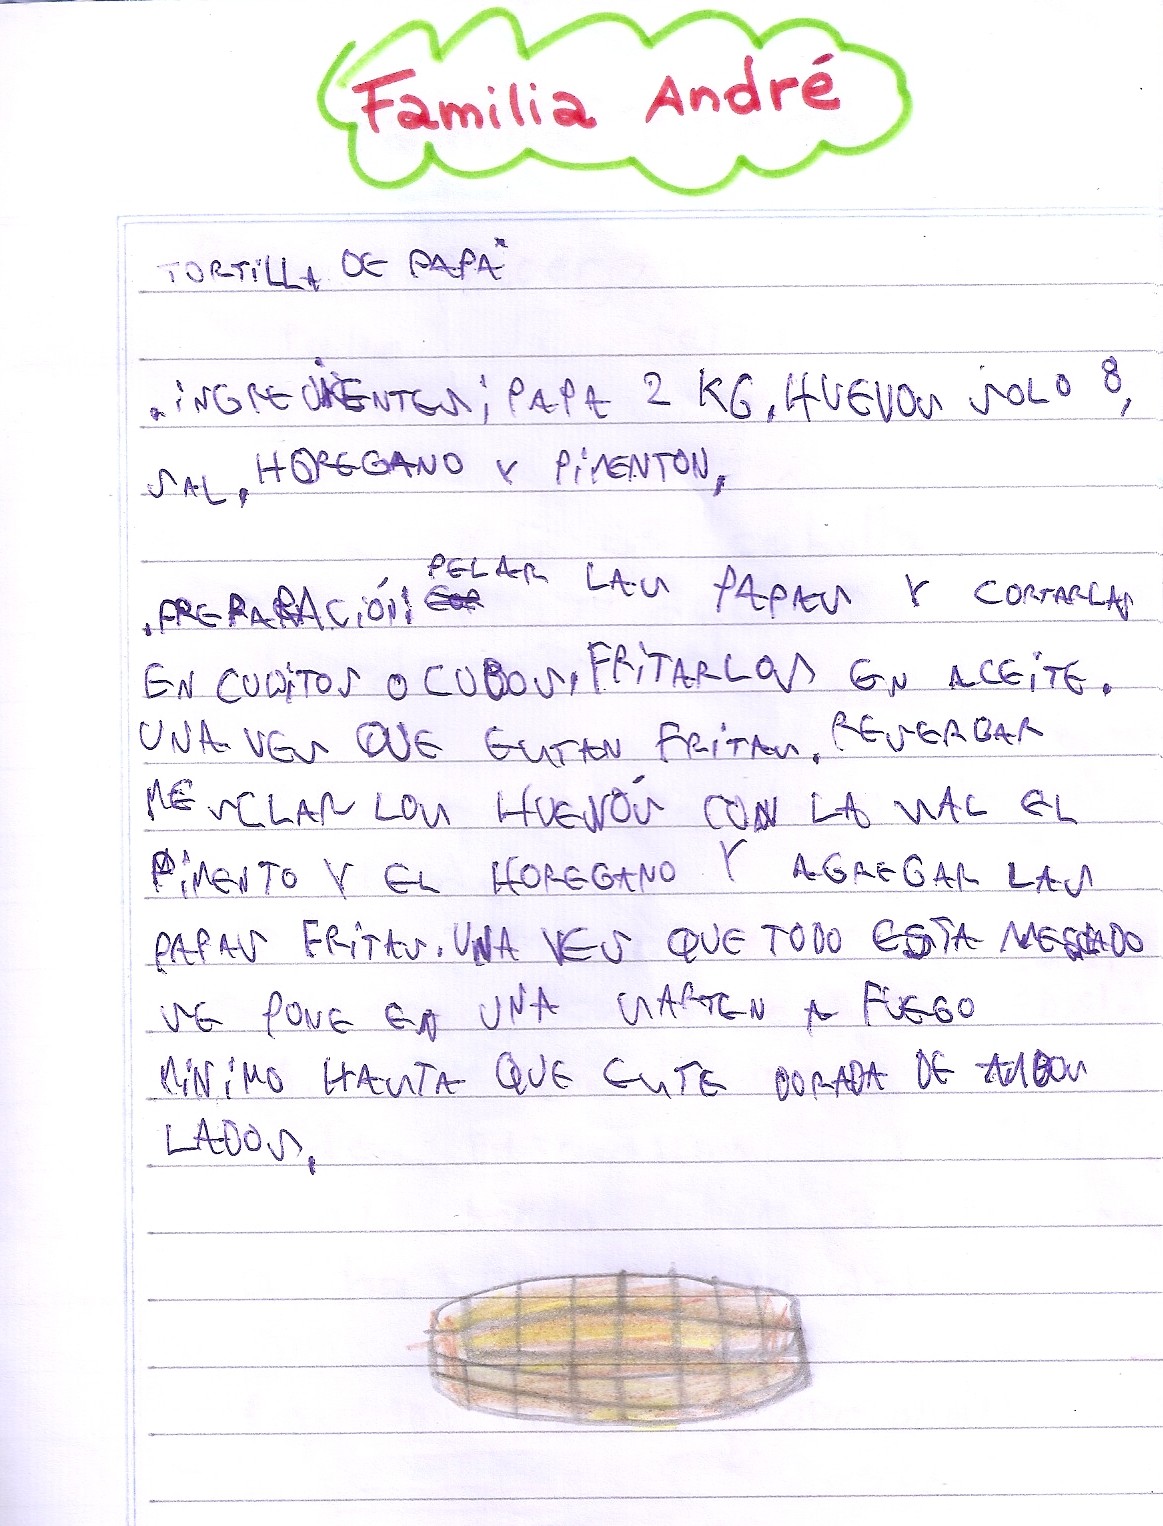 Familia André
TORTILLA DE PAPA
.iNGREDiENTES; PAPA 2 KG, HUEVOS SOLO 8,
SAL, HOREGANO Y PiMENTON,
.PREPARACiÓN: PELAR LAS PAPAS Y CORTARLAS
EN CUDiTOS O CUBOS, FRiTARLOS EN ACEiTE.
UNA VES QUE ESTAN FRiTAS. RESERBAR
MESCLAR LOS HUEVOS CON LA SAL EL
PiMENTO Y EL HOREGANO Y AGREGAR LAS
PAPAS FRiTAS. UNA VES QUE TODO ESTA MESCLADO
SE PONE EN UNA SARTEN A FUEGO
MiNiMO HASTA QUE ESTE DORADA DE AMBOS
LADOS,